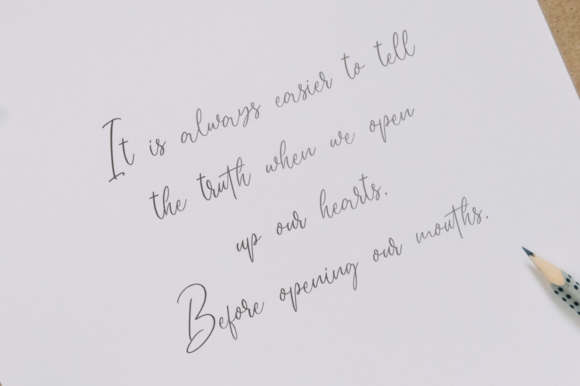 It is always easier to tell
the truth when we open
up our hearts.
Before opening our mouths.